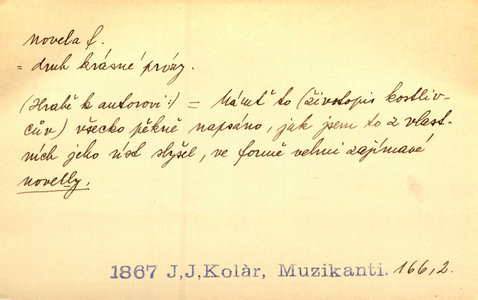 novela f.
= druh krásné prózy.
(Hrabě k autorovi:) = Mámť to (životopis kostliv-
cův) všecko pěkně napsáno, jak jsem to z vlast-
ních jeho úst slyšel, ve formě velmi zajímavé
novelly.
1867 J,J,Kolàr, Muzikanti. 166,2.